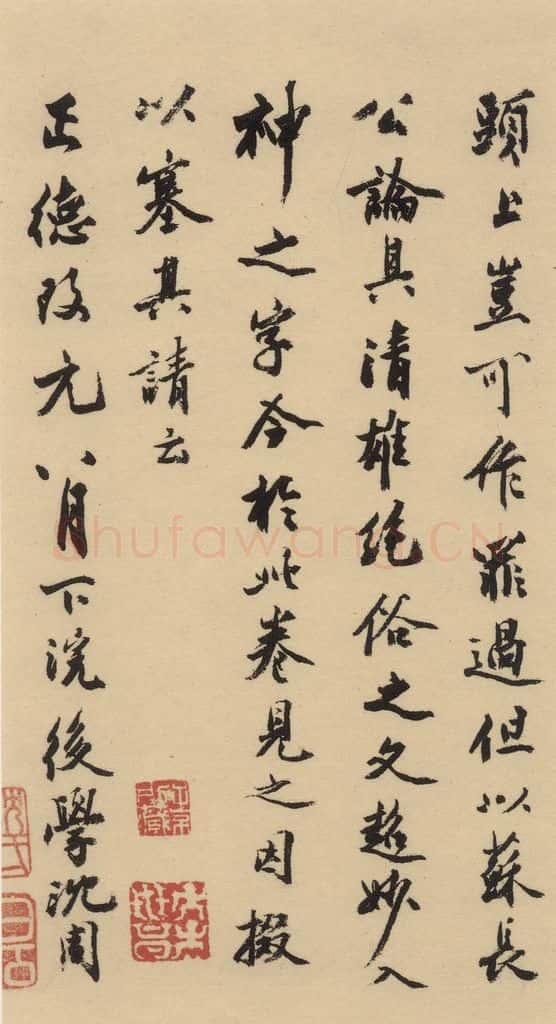 頭上豈可作罪過但以蘇長
公論其清雄絶俗之文超妙入
神之字今於此卷見之因掇
以塞其請云
正德改元八月下浣後學沈周
Shufawang.CN